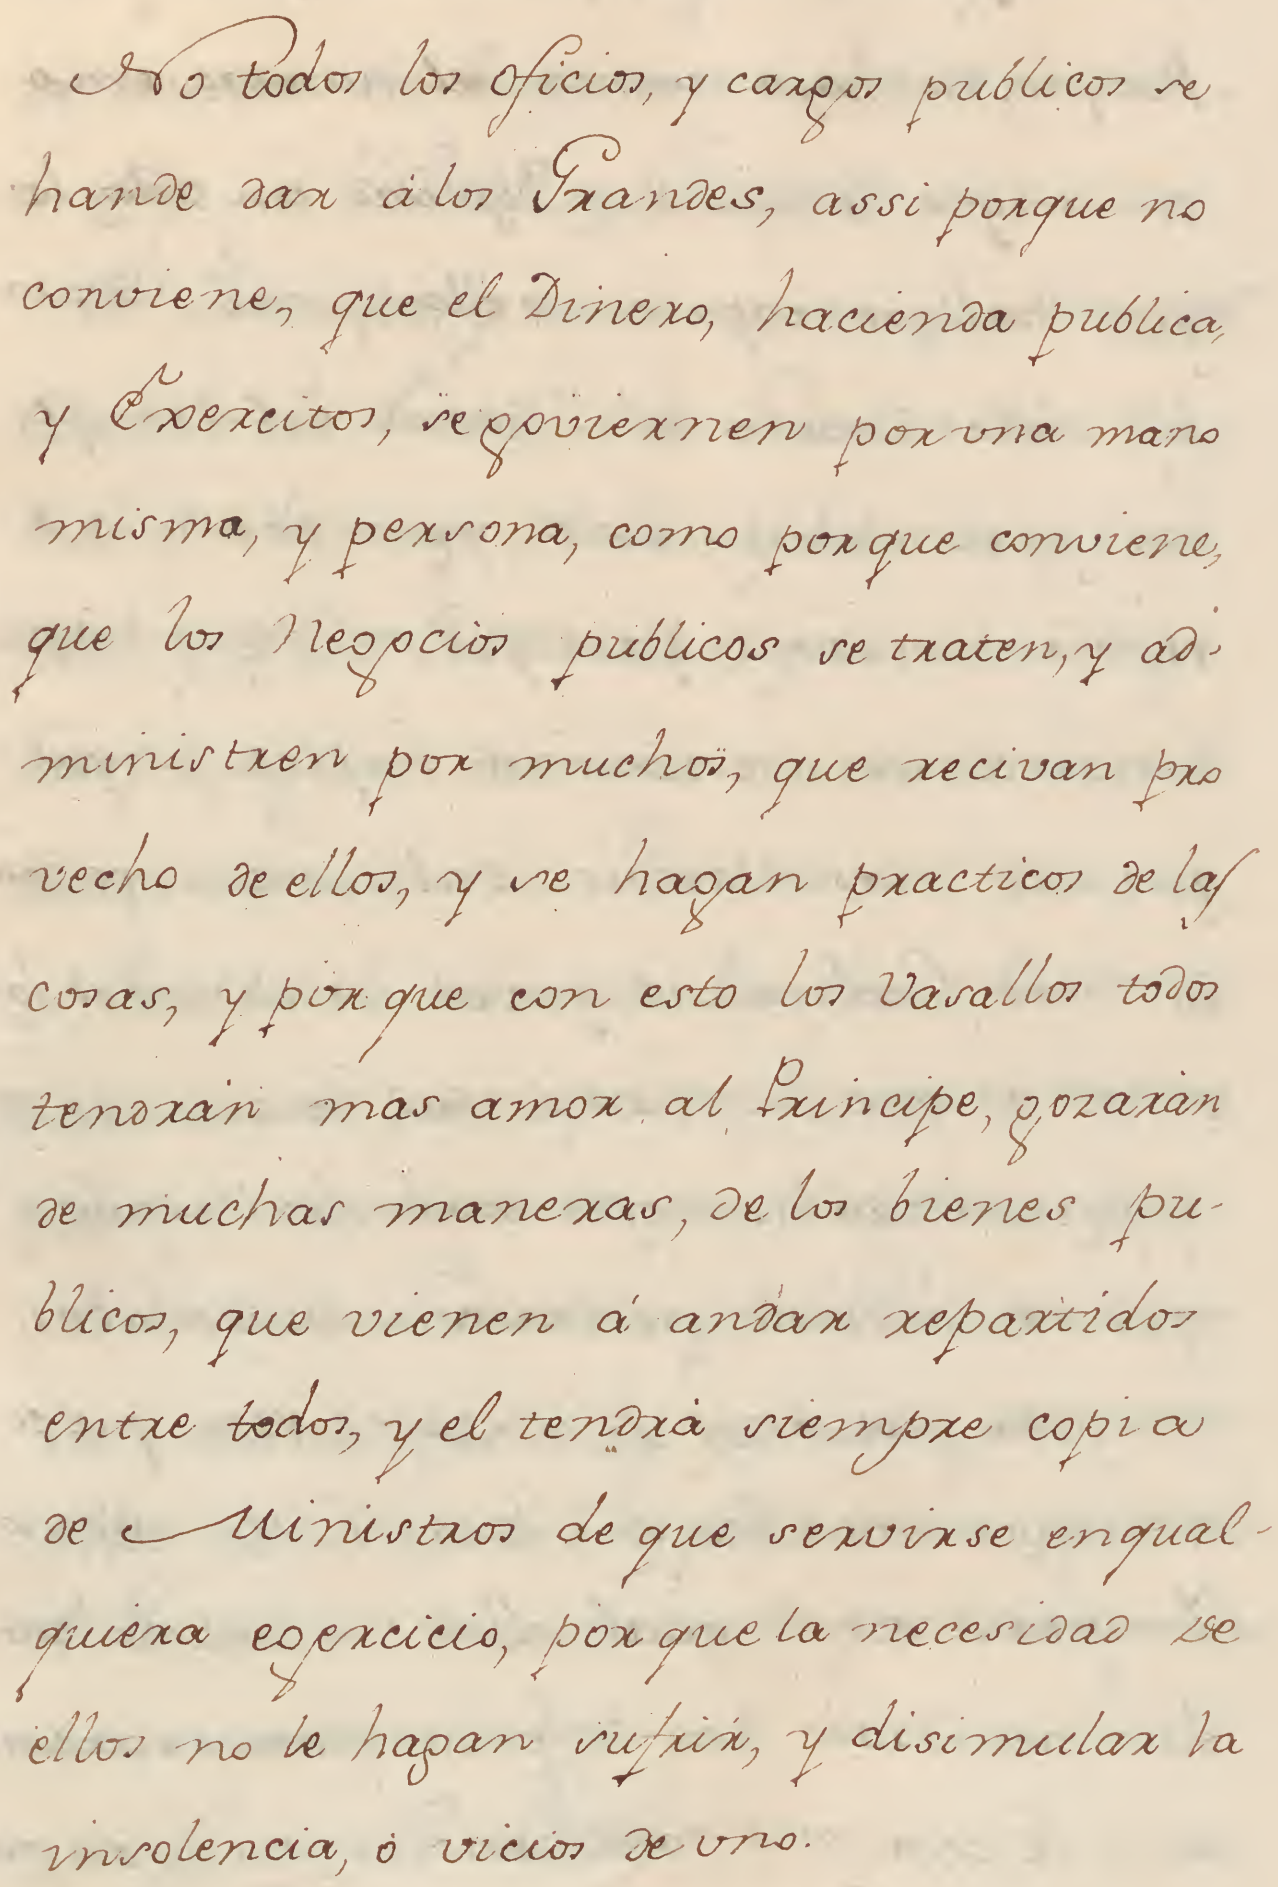 No todos los oficios, y cargos publicos se
hande dar á los Grandes, assi porque no
conviene, que el Dinero, hacienda publica,
y Exercitos, se goviernen por vna mano
misma, y persona, como porque conviene,
que los Negocios publicos se traten, y ad-
ministren por muchos, que recivan pro
vecho de ellos, y se hagan practicos de las
cosas, y porque con esto los Vasallos todos
tendrán mas amor al Principe, gozarán
de muchas maneras, de los bienes pu-
blicos, que vienen á andar repartidos
entre todos, y el tendrá siempre copia
de Ministros de que servirse enqual-
quiera egercicio, porque la necesidad de
ellos no le hagan sufrir, y disimular la
insolencia, ó vicios de vno.